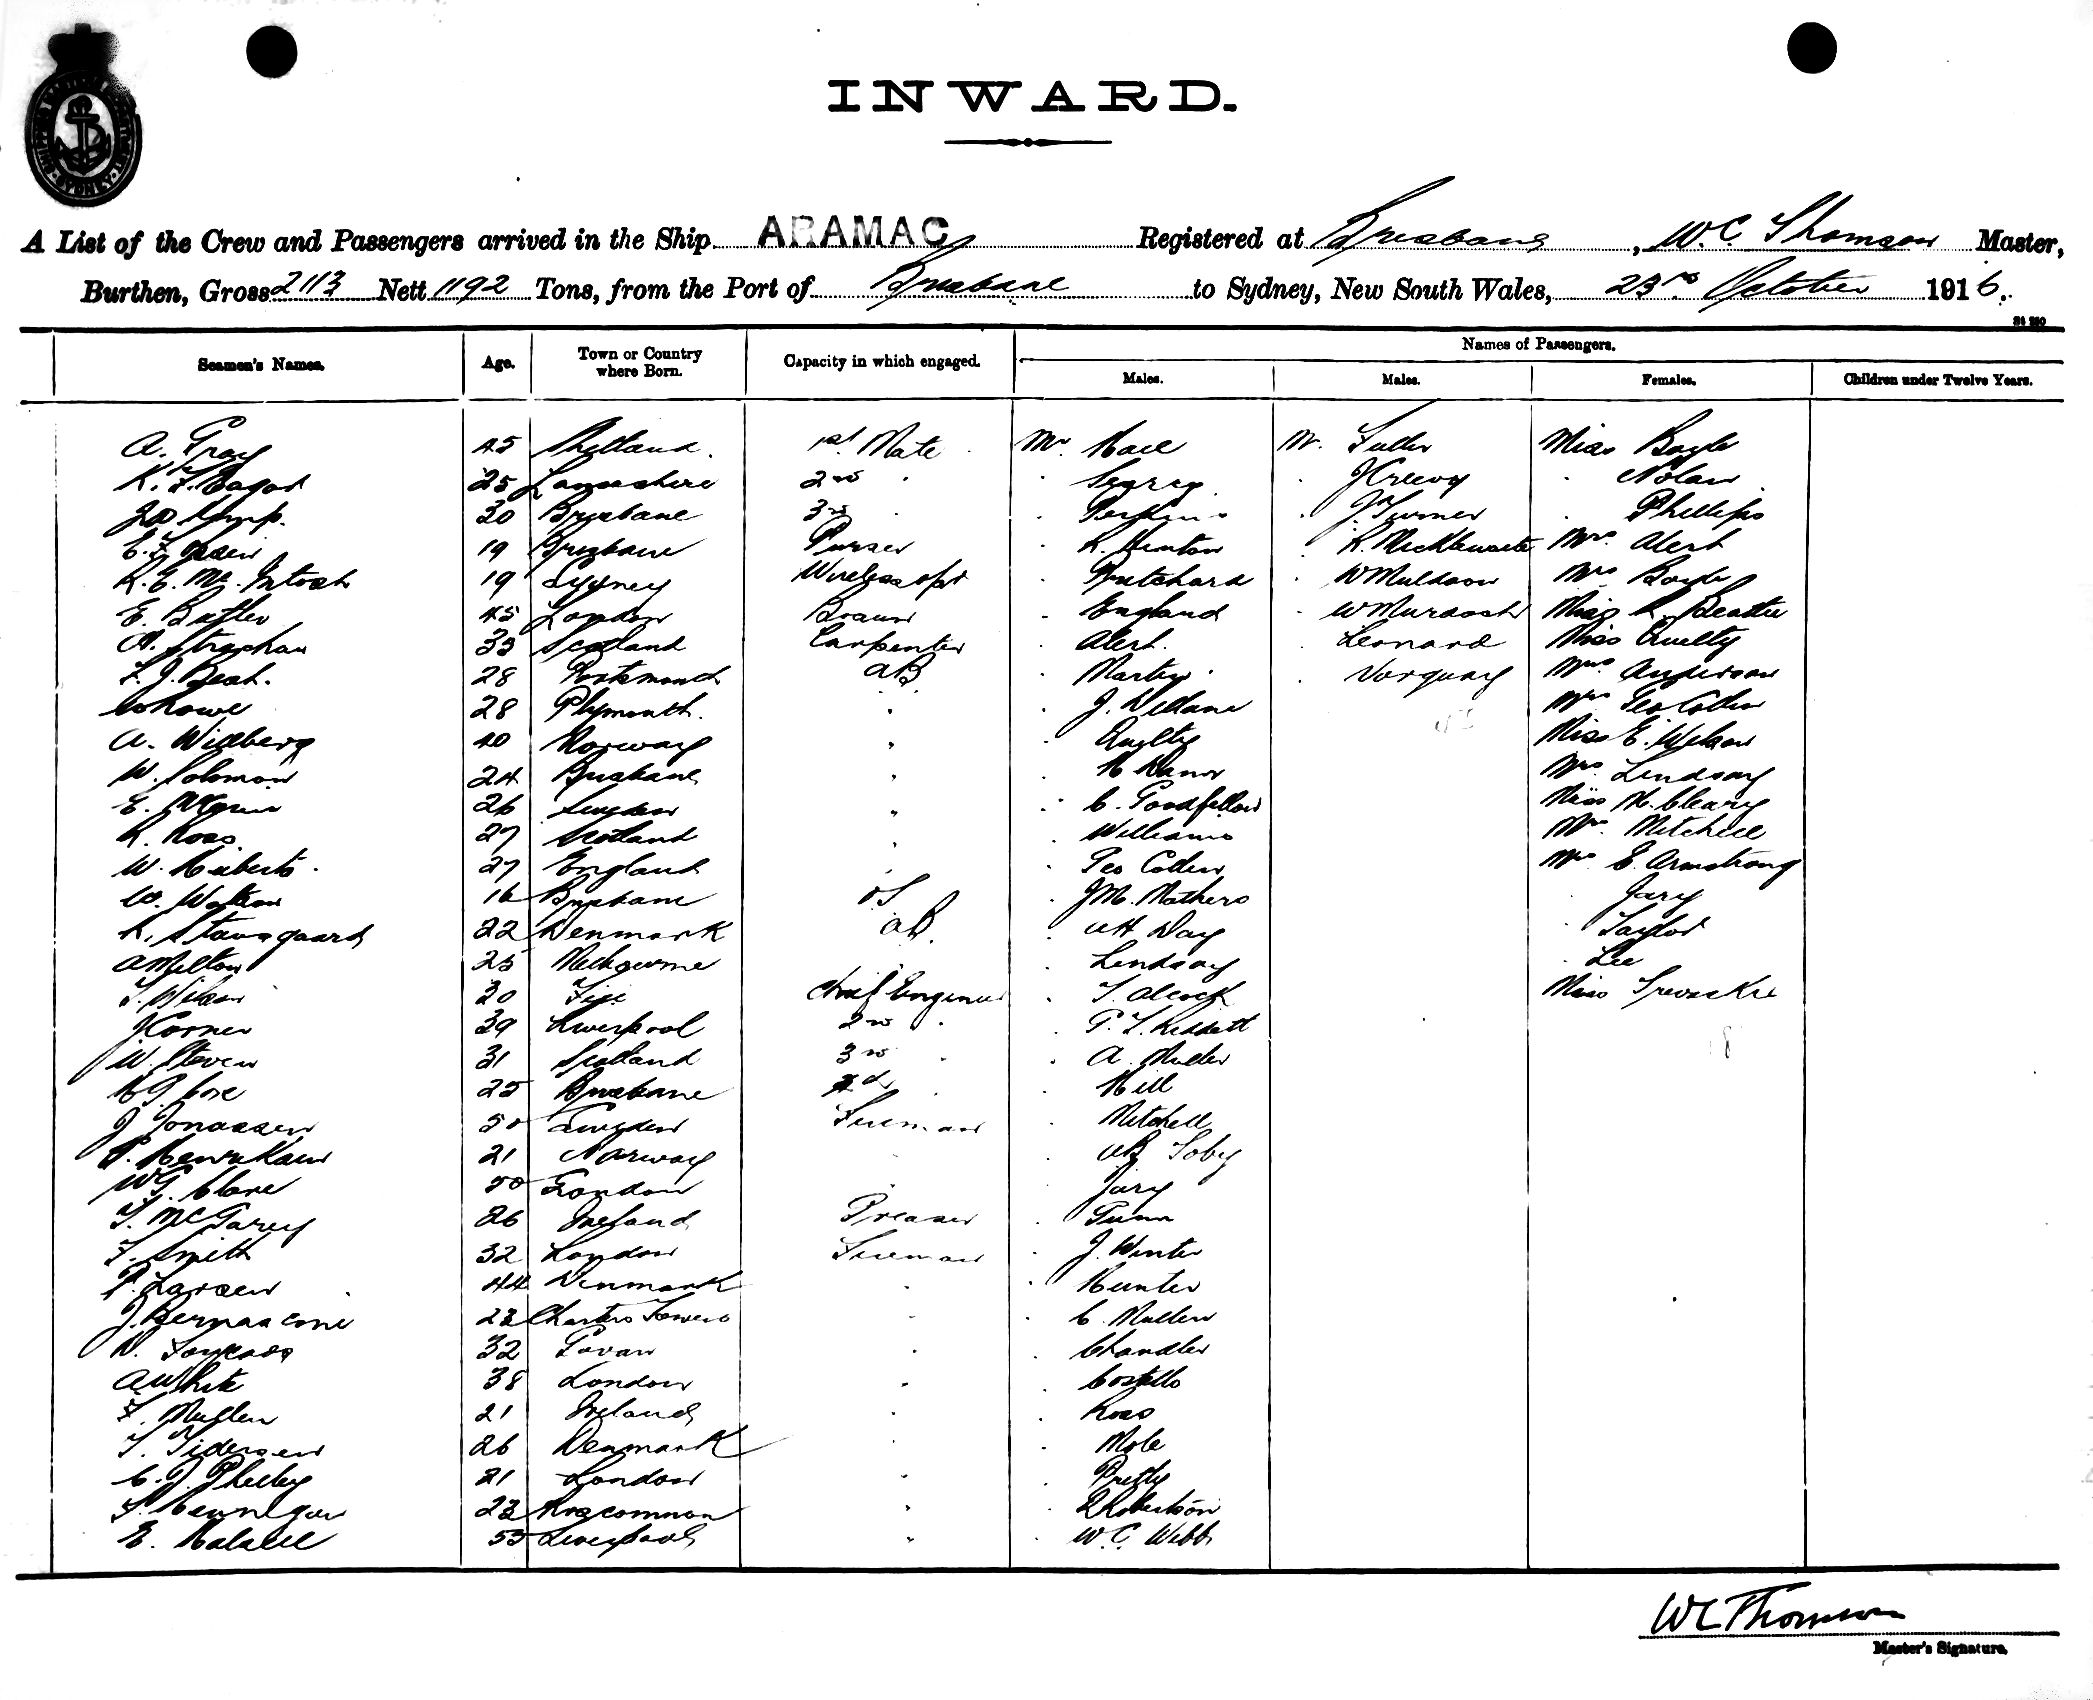 INWARD.
SHIPPING SYDNEY
A List of the Crew and Passengers arrived in the Ship ARAMAC Registered at Brisbane, W.C. Thomson Master,
Burthen, Gross 2113 Nett 1192 Tons, from the Port of Brisbane to Sydney, New South Wales, 23rd October 1916.
Seamen's Names. Age. Town or Country where Born. Capacity in which engaged. Names of Passengers.
Males. Males. Females. Children under Twelve Years.
A. Gray 45 Shetland. 1st Mate Mr. Hall Mr. Fuller Miss Boyle
25 Lancashire 2nd " " J Creevy " Nolan
30 Brisbane 3rd " Perkins " J Turner " Phillips
19 Brisbane Purser " " Mrs. Alert
K. E. Mc. Intosh 19 Sydney Wireless opr " Pritchard " W Muldoon Mrs Boyle
E. Butler 45 London Bosun " England " W Murdoch Miss Beattie
A. Strachan 33 Scotland Carpenter " Alert. " Leonard Miss Quelty
28 Portsmouth AB " Martin " Mrs Anderson
W Rowe 28 Plymouth. " " J. Mrs Geo Cotten
A. Willberg 40 Norway " " Quelty Miss E. Wilson
W. Solomon 24 Brisbane " " Mrs. Lindsay
E. 26 Sweden " " C. Goodfellow Miss M. Cleary
R. Ross 27 Scotland " " Williams Mrs. Mitchell
W. Roberts. 27 England " " Geo Cotten Mrs E. Armstrong
W. Watson 16 Brisbane OS " J M. Mathers " Jary
22 Denmark AB. " W H Day " Taylor
A Milton 25 Melbourne " Lindsay " Lee
T. Wilson 30 Fiji Chief Engineer " T. Alcock Miss
J Corner 39 Liverpool 2nd " "
W. Steven 31 Scotland 3rd " " A. Muller
25 Brisbane " " Hill
J Jonassen 50 Sweden Fireman " Mitchell
P. 21 Norway " " Toby
W G. Clare 50 London " " Jary
T. McGarry 26 Ireland Greaser " Gunn
F. Smith 32 London Fireman " J. Winter
P. Larsen 44 Denmark " " Hunter
J. Bernasconi 23 Charters Towers " " C. Mullen
32 Govan " " Chandler
A White 38 London " " Costello
F. Mullen 21 Ireland " " Ross
T. Pedersen 26 Denmark " Mole
C. J. 21 London " " Pretty
23 Roscommon " " Robertson
E. 55 Liverpool " " W. C. Webb
WC Thomson
Master's Signature.